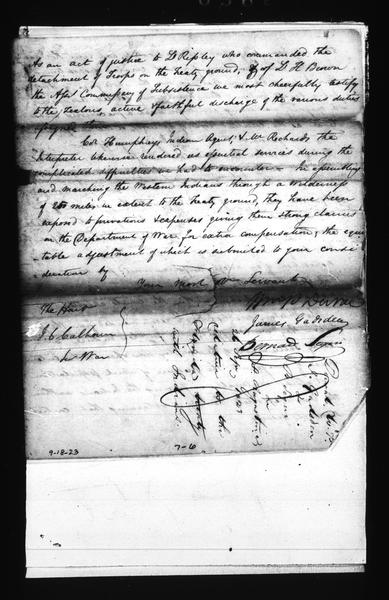 As an act of justice to Lt Ripley who commanded the
detachment of Troops on the treaty ground, & of Lt H Brown
the Asst Commissary of Subsistence we most cheerfully testify
to the zealous, active & faithful discharge of the various duties
Col Humphreys Indian Agent, & Mr Richards, the
Interpreter likewise rendered us essential services during the
complicated difficulties we had to encounter - In assembling
and marching the Western Indians through a Wilderness
of 250 miles in extent to the treaty ground, they have been
exposed to privations & expenses giving them strong claims
on the Department of War for extra compensation; the equi-
table adjustment of which is submitted to your consi-
deration by
Your Most Obt Servants
The Hon
Wm P Duval
J. C. Calhoun
James Gadsden
Bernard Segui
Sec War
Florida treaty
with Indians
9-18-23
7-6